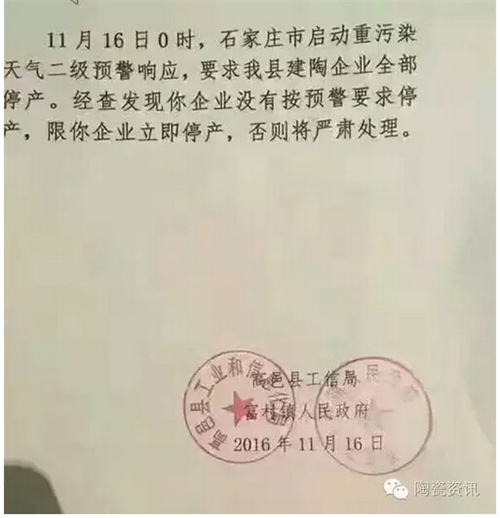 11月16日0时，石家庄市启动重污染
天气二级预警响应，要求我县建陶企业全部
停产。经查发现你企业没有按预警要求停
产，限你企业立即停产，否则将严肃处理。
高邑县工业和信息化局
高邑县工信局
富村镇人民政府
2016年11月16日
陶瓷资讯